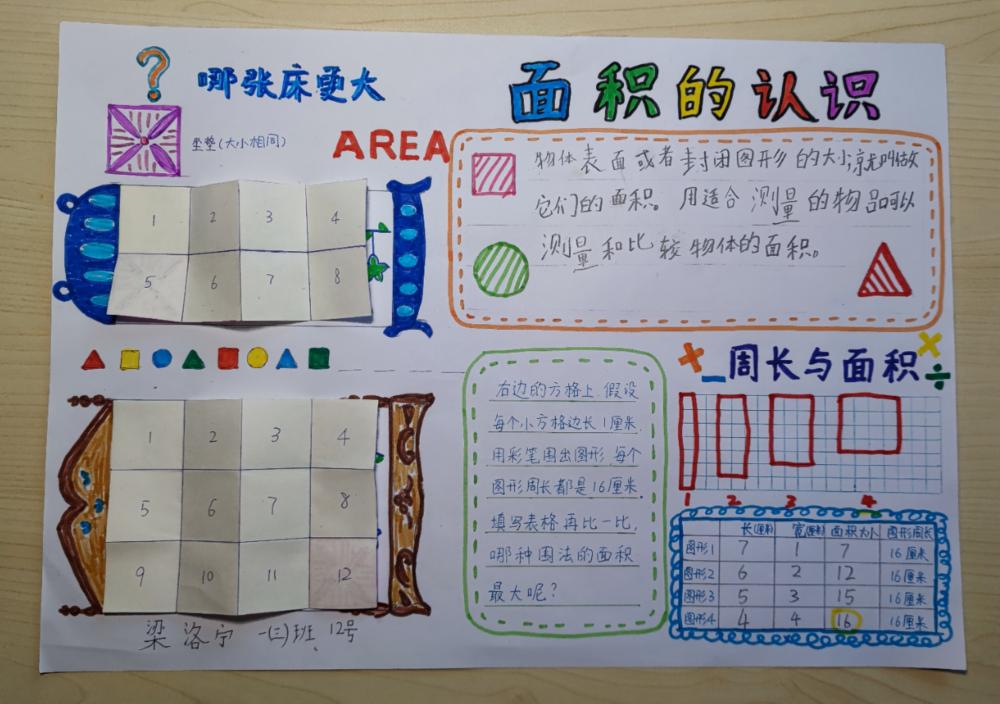 面积的认识
? 哪张床更大
坐垫(大小相同)
AREA
1 2 3 4
5 6 7 8
1 2 3 4
5 6 7 8
9 10 11 12
梁洛宁 一(三)班 12号
物体表面或者封闭图形的大小,就叫做
它们的面积。用适合测量的物品可以
测量和比较物体的面积。
右边的方格上,假设
每个小方格边长1厘米.
用彩笔围出图形,每个
图形周长都是16厘米.
填写表格再比一比,
哪种围法的面积
最大呢?
周长与面积
1 2 3 4
长(厘米) 宽(厘米) 面积大小 图形周长
图形1 7 1 7 16厘米
图形2 6 2 12 16厘米
图形3 5 3 15 16厘米
图形4 4 4 16 16厘米